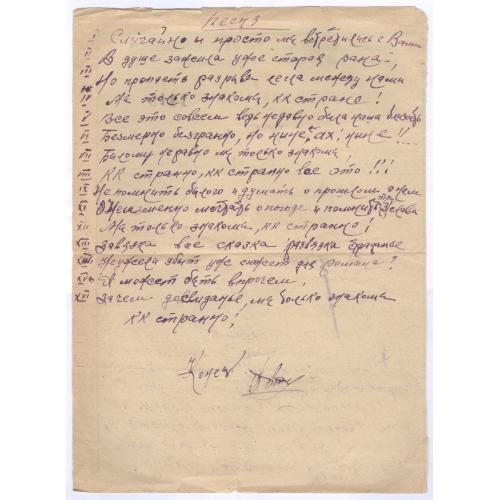 Песня
I Случайно и просто мы встретились с Вами
II В душе зажила уже старая рана,
III Но пропасть разрыва легла между нами
IV Мы только знакомы, кк странно!
V Все это совсем ведь недавно была наша близость
VI Безмерно безгранно, но ныне, ах! ныне!!
VII Былому недавно мы только знакомы,
VIII кк странно, кк странно все это!!!
IX Не помнить былого и думать о прошлом днем
X О погоде и помнить
XI Мы только знакомы, кк странно!
XII Завязка вас сказка развязка
XIII Неужели сюжет для романа?
XIV А может быть впрочем,
XV Зачем досвиданье, мы только знакомы
кк странно!
Конец